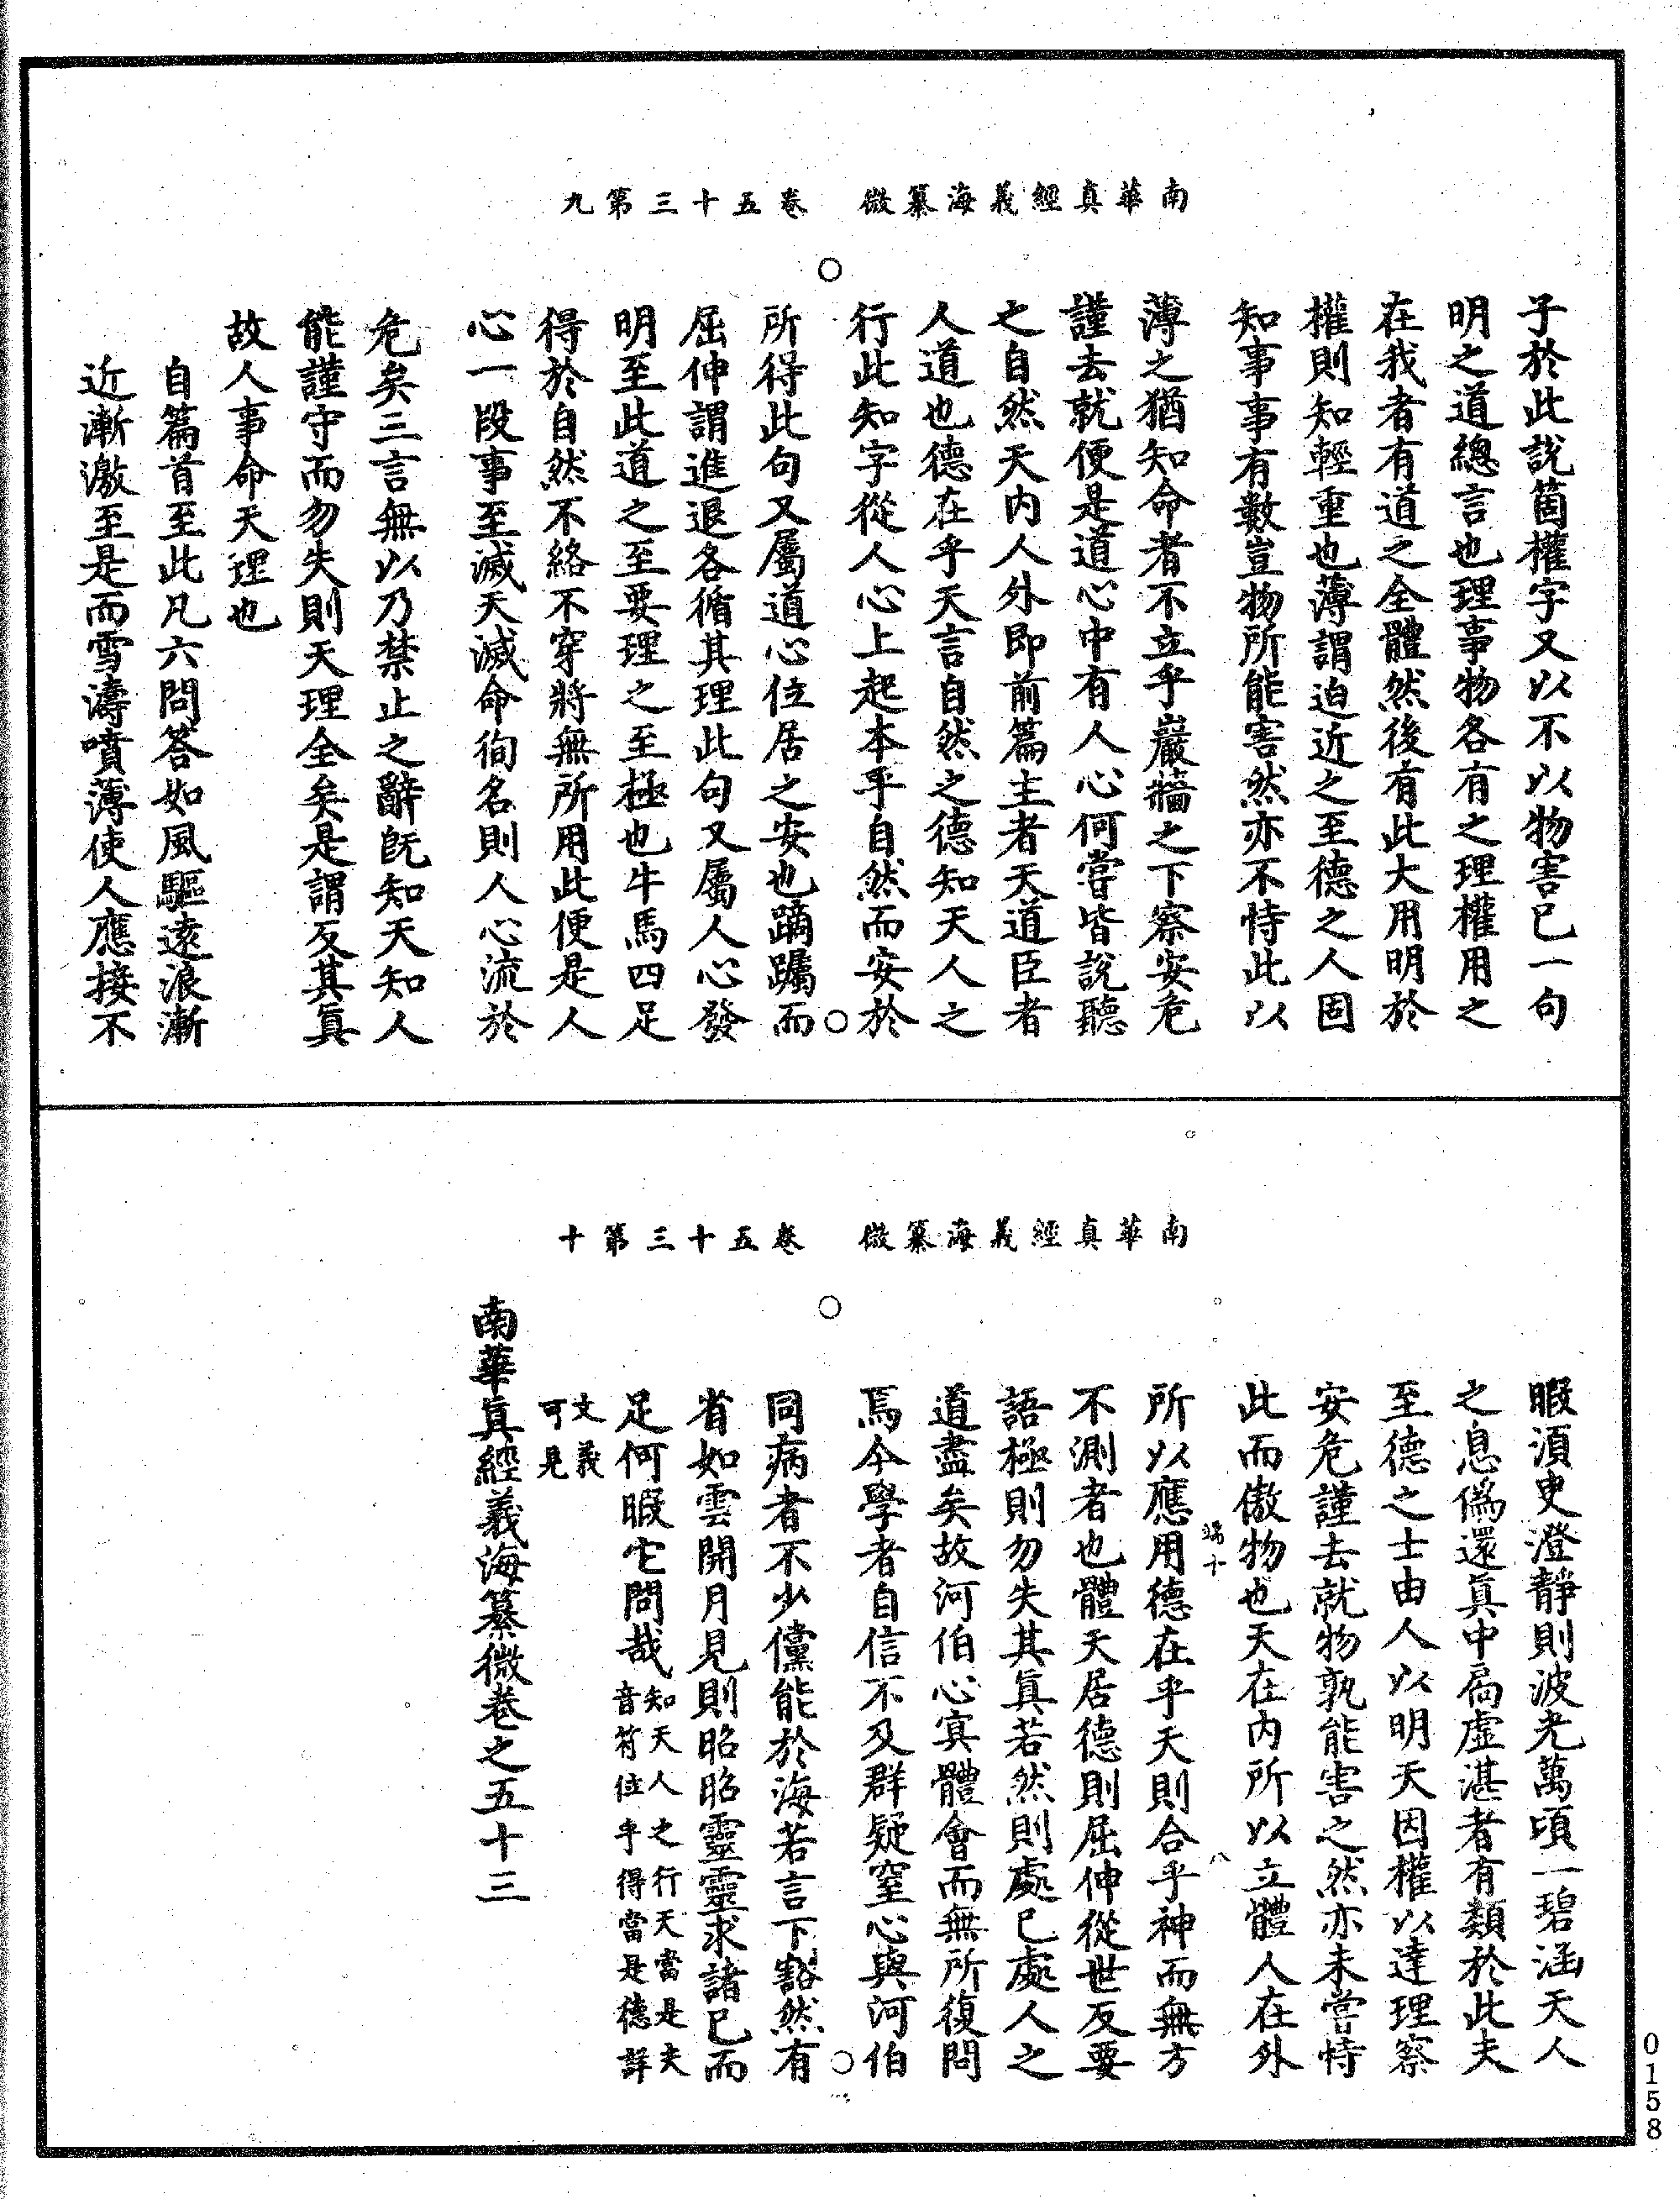 南華真經義海纂微　卷五十三第九
子於此説箇權字又以不以物害己一句
明之道總言也理事物各有之理權用之
在我者有道之全體然後有此大用明於
權則知輕重也薄謂迫近之至德之人固
知事事有數豈物所能害然亦不恃此以
薄之猶知命者不立乎巖牆之下察安危
謹去就便是道心中有人心何嘗皆說聽
之自然天內人外即前篇主者天道臣者
人道也德在乎天言自然之德知天人之
行此知字從人心上起本乎自然而安於
所得此句又屬道心位居之安也蹢躅而
屈伸謂進退各循其理此句又屬人心發
明至此道之至要理之至極也牛馬四足
得於自然不絡不穿將無所用此便是人
心一段事至滅天滅命徇名則人心流於
危矣三言無以乃禁止之辭既知天知人
能謹守而勿失則天理全矣是謂反其眞
故人事命天理也
自篇首至此凡六問答如風驅遠浪漸
近漸激至是而雪濤噴薄使人應接不
南華真經義海纂微　卷五十三第十
暇湏㬰澄靜則波光萬頃一碧涵天人
之息偽還眞中扃虛湛者有類於此夫
至德之士由人以明天因權以達理察
安危謹去就物孰能害之然亦未嘗恃
此而傲物也天在內所以立體人在外
所以應用德在乎天則合乎神而無方
不測者也體天居德則屈伸從世反要
語極則勿失其眞若然則處己處人之
道盡矣故河伯心㝠體會而無所復問
焉今學者自信不及群疑窒心與河伯
同病者不少儻能於海若言下豁然有
省如雲開月見則昭昭靈靈求諸己而
足何暇它問哉知天人之行天當是夫
音符位乎得當是德詳
文義
可見
南華眞經義海纂微卷之五十三
0158